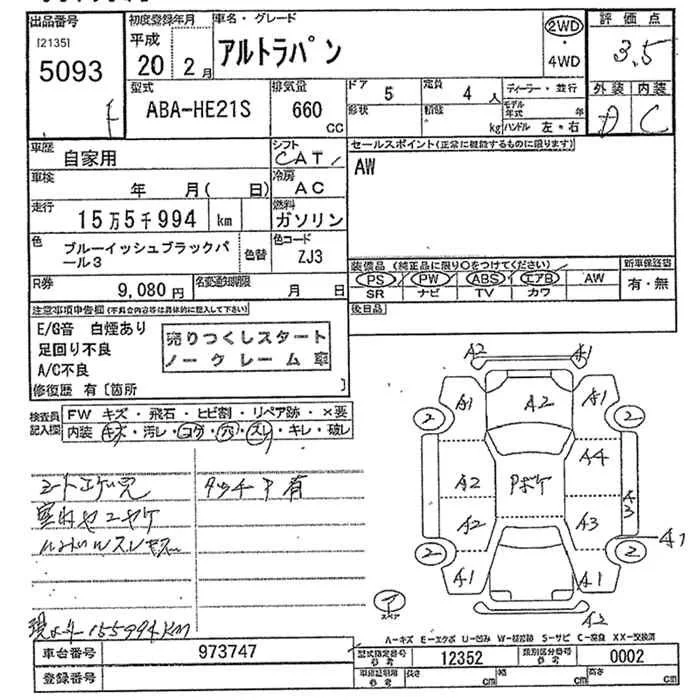 出品番号 初度登録年月 車名・グレード 2WD 評価点
[2135] 平成 アルトラパン ・ 3.5
5093 20 年 2 月 4WD
型式 排気量 ドア 5 定員 4 人 ディーラー・並行 外装 内装
F ABA-HE21S 660 CC 形状 積載 kg モデル年式 年 D C
ハンドル 左・右
車歴 自家用 シフト CAT セールスポイント(正常に機能するものに限ります)
車検 年 月( 日) 冷房 AC AW
走行 15万5千994 km 燃料 ガソリン
色 ブルーイッシュブラックパール3 色替 色コード ZJ3
装備品 (純正品に限り○をつけてください) 新車保証書
R券 9,080円 名変通知期限 月 日 PS PW ABS エアB AW 有・無
SR ナビ TV カワ
注意事項申告欄(不具合内容等は具体的に記入して下さい) 後日品
E/G音 白煙あり
足回り不良
A/C不良
売りつくしスタート
ノークレーム車
修復歴 有〔箇所 〕
検査員記入欄 FW キズ・飛石・ヒビ割・リペア跡・×要
内装 キズ・汚レ・コゲ・穴・スレ・キレ・破レ
A2 A1
A1 A2 A1
2 2
A4
A2 Pボケ
A3
A2 A3
2 2 A1
A1 A1
A2
シートコゲ穴 タッチP有
ハンドルスレキズ
現メーター155994KM
スペア
A-キズ E-エクボ U-凹み W-補修跡 S-サビ C-腐食 XX-交換済
車台番号 973747 型式指定番号 参考 12352 類別区分番号 参考 0002
登録番号 車庫証明用 参考 長さ cm 幅 cm 高さ cm